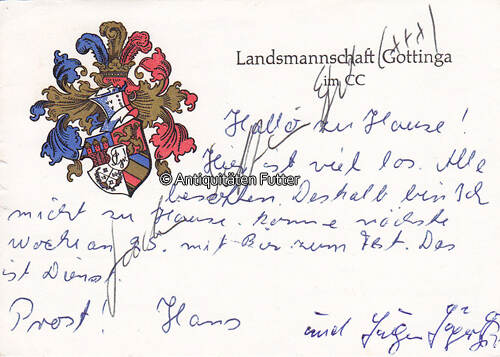 Landsmannschaft Gottinga
im CC
(xxx)
Hallo zu Hause!
Hier ist viel los. Alle
© Antiquitäten Futter
besoffen. Deshalb bin Ich
nicht zu Hause komme nächste
Woche an
mit Bier zum Fest. Das
ist Dienst
Prost! Hans und Jürgen Jäger